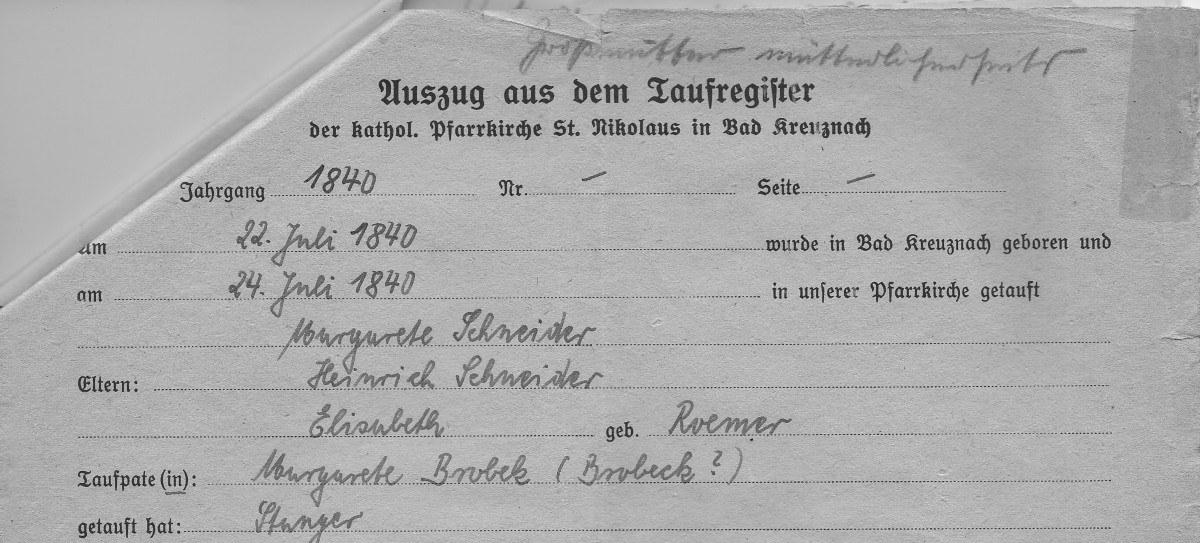 Großmutter mütterlicherseits
Auszug aus dem Taufregister
der kathol. Pfarrkirche St. Nikolaus in Bad Kreuznach
Jahrgang 1840 Nr. — Seite —
am 22. Juli 1840 wurde in Bad Kreuznach geboren und
am 24. Juli 1840 in unserer Pfarrkirche getauft
Margarete Schneider
Eltern: Heinrich Schneider
Elisabeth geb. Roemer
Taufpate (in): Margarete Brobek (Brobeck?)
getauft hat: Stanger